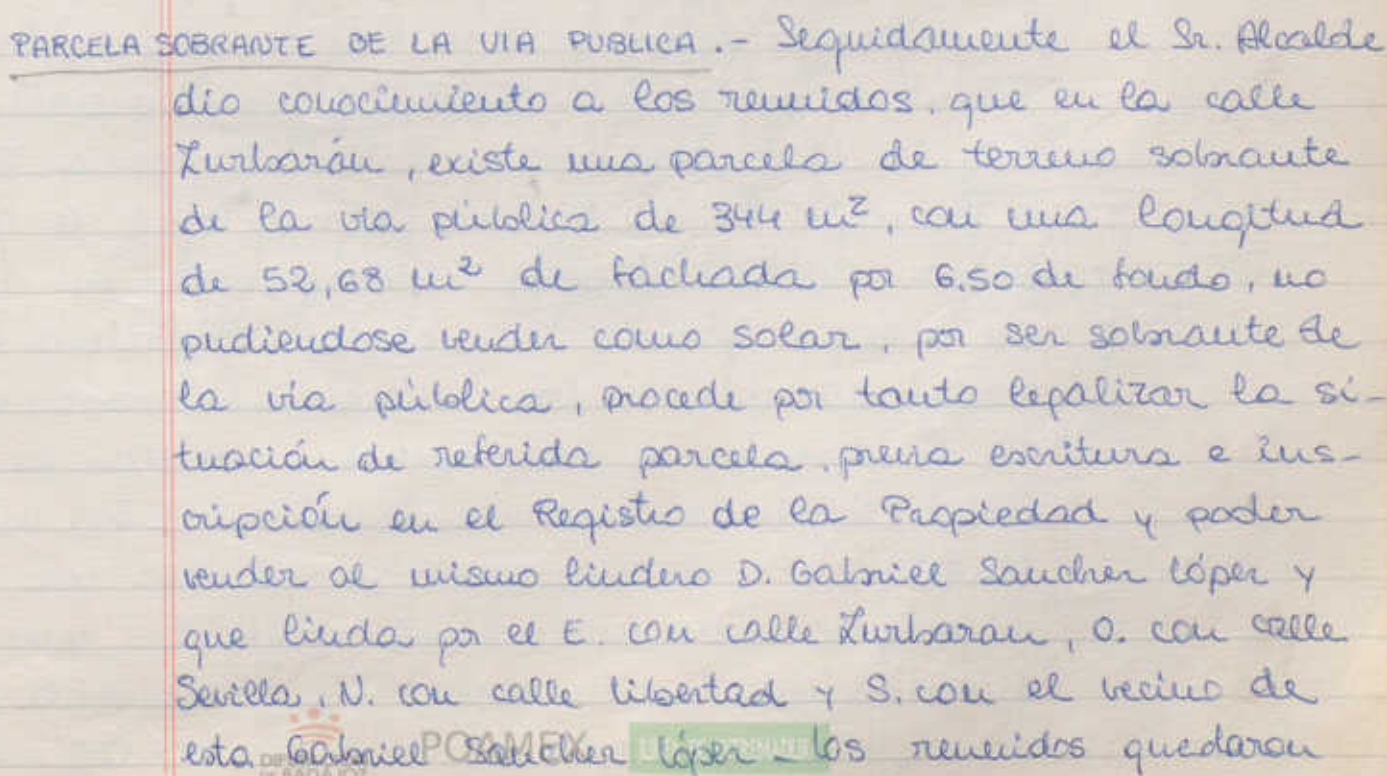 PARCELA SOBRANTE DE LA VIA PUBLICA.- Seguidamente el Sr. Alcalde
dio conocimiento a los reunidos, que en la calle
Zurbarán, existe una parcela de terreno sobrante
de la via pública de 344 m², con una longitud
de 52,68 m² de fachada por 6.50 de fondo, no
pudiendose vender como solar, por ser sobrante de
la vía pública, procede por tanto legalizar la si-
tuación de referida parcela, previa escritura e ins-
cripción en el Registro de la Propiedad y poder
vender al mismo lindero D. Gabriel Sanchez López y
que linda por el E. con calle Zurbaran, O. con calle
Sevilla, N. con calle libertad y S. con el vecino de
esta Gabriel Sanchez lópez - los reunidos quedaron
POAMEX